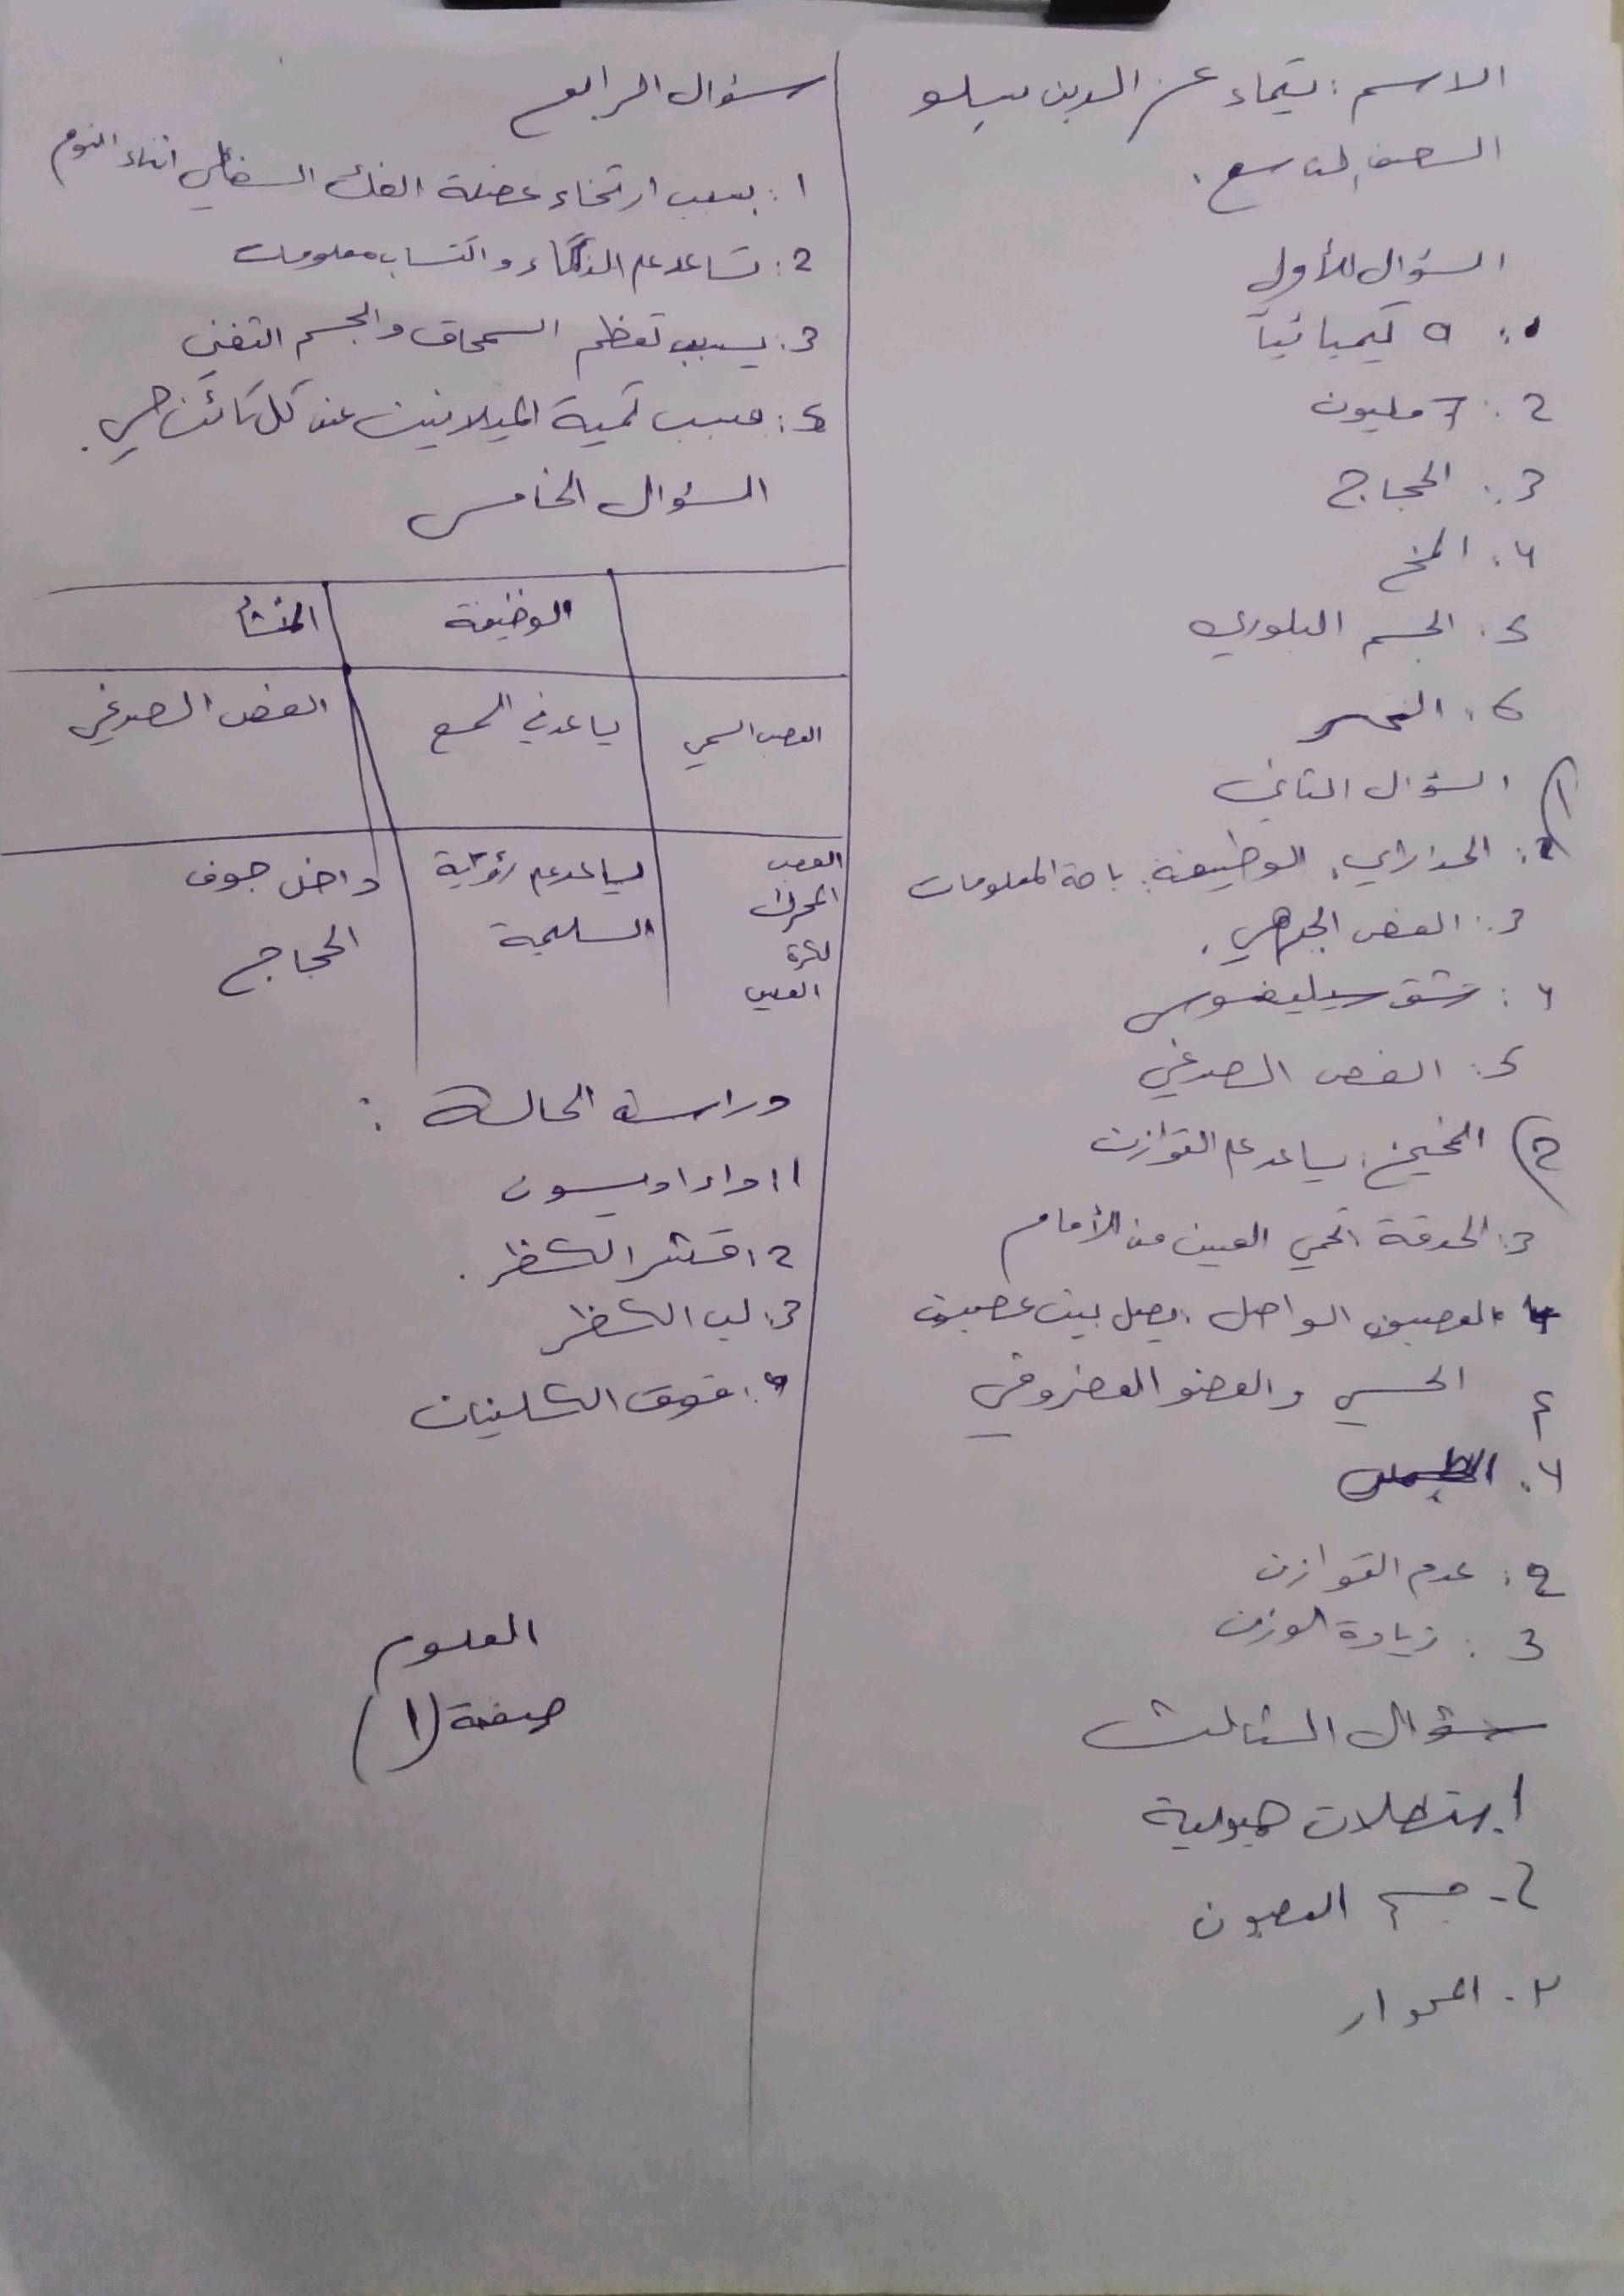 الاسم : تيماء عز الدين سلو
الصف التاسع .
السؤال الأول
1: a كيميائياً
2 : 7 مليون
3 : الحجاج
4 . المخ
5 . الجسم البلوري
6 .
1) السؤال الثاني
الوظيفة : باحة المعلومات
3 : الفص الجبهي .
4 : شق سيلفيوس
5 : الفص الصدغي
2) المخيخ : يساعد على التوازن
3 : الحدقة تحمي العين من الأمام
4 العصبون الواصل : يصل بين عصبون
الحسي والعضو الغضروفي
4 .
2 : عدم التوازن
3 : زيادة الوزن
سؤال الثالث
1. استطالات هيولية
2 - جسم العصبون
3 - المحوار
سؤال الرابع
1 : بسبب ارتخاء عضلة الفك السفلي اثناء النوم
2 : تساعد على الذكاء واكتساب معلومات
3 : يسبب تعظم السمحاق والجسم
5 : حسب كمية الميلانين عند كل كائن حي .
السؤال الخامس
الوظيفة المنشأ
العصب السمعي يساعد في السمع الفص الصدغي
العصب المحرك لكرة العين يساعد على رؤية السليمة داخل جوف الحجاج
دراسة الحالة :
1 : داء اديسون
2 : قشر الكظر .
3 : لب الكظر
4 : فوق الكليتان
العلوم
صفحة (1)